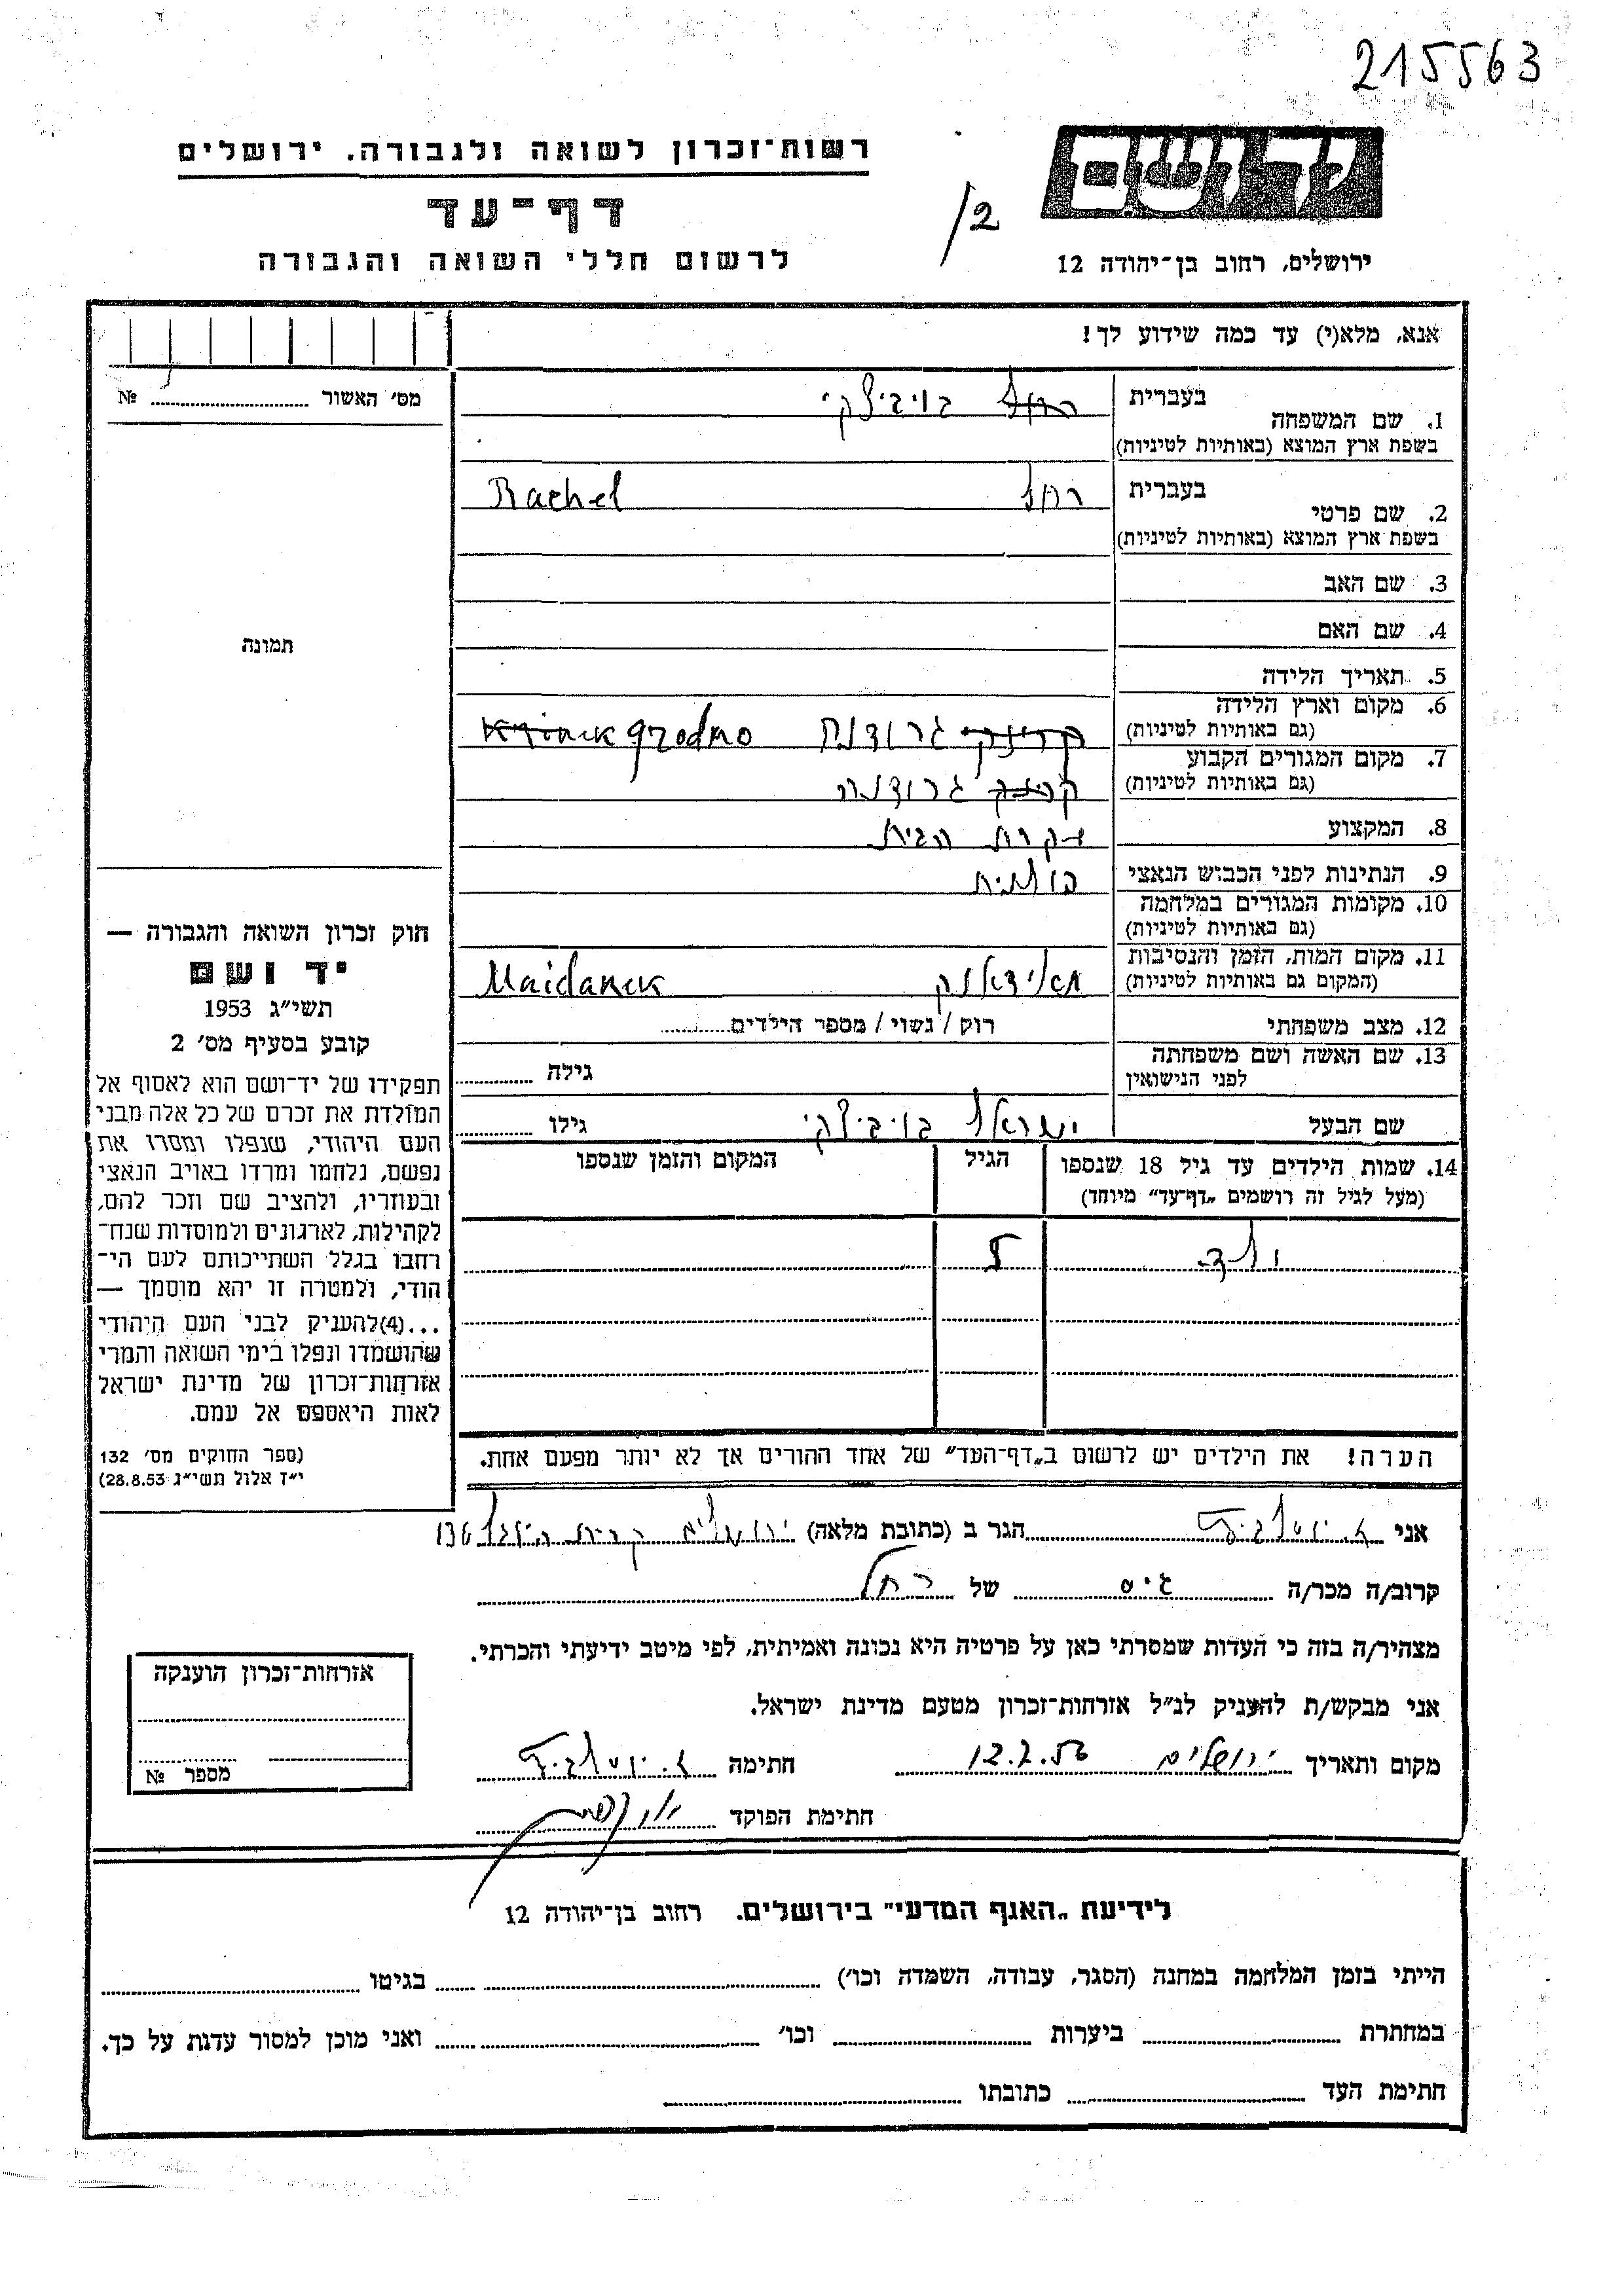 215563
רשות־זכרון לשואה ולגבורה. ירושלים
יד ושם
דף־עד
/2
לרשום חללי השואה והגבורה
ירושלים, רחוב בן־יהודה 12
אנא, מלא(י) עד כמה שידוע לך!
מס׳ האשור № 
1. שם המשפחה
בעברית רחל
בשפת ארץ המוצא (באותיות לטיניות)
2. שם פרטי
בעברית רחל Rachel
בשפת ארץ המוצא (באותיות לטיניות)
3. שם האב
4. שם האם
5. תאריך הלידה
6. מקום וארץ הלידה
(גם באותיות לטיניות) קרינקי גרודנה Krinek grodno
7. מקום המגורים הקבוע
(גם באותיות לטיניות) גרודנה
8. המקצוע עקרת הבית
9. הנתינות לפני הכבוש הנאצי פולנית
10. מקומות המגורים במלחמה
(גם באותיות לטיניות)
11. מקום המות, הזמן והנסיבות
(המקום גם באותיות לטיניות) מאידאנק Maidanek
12. מצב משפחתי רוק / נשוי / מספר הילדים
13. שם האשה ושם משפחתה
לפני הנישואין גילה
שם הבעל ישראל גילו
14. שמות הילדים עד גיל 18 שנספו הגיל המקום והזמן שנספו
(מעל לגיל זה רושמים „דף־עד״ מיוחד)
ילד
הערה! את הילדים יש לרשום ב„דף־העד״ של אחד ההורים אך לא יותר מפעם אחת.
תמונה
חוק זכרון השואה והגבורה —
יד ושם
תשי״ג 1953
קובע בסעיף מס׳ 2
תפקידו של יד־ושם הוא לאסוף אל
המולדת את זכרם של כל אלה מבני
העם היהודי, שנפלו ומסרו את
נפשם, נלחמו ומרדו באויב הנאצי
ובעוזריו, ולהציב שם וזכר להם,
לקהילות, לארגונים ולמוסדות שנח־
רבו בגלל השתייכותם לעם הי־
הודי, ולמטרה זו יהא מוסמך —
...(4)להעניק לבני העם היהודי
שהושמדו ונפלו בימי השואה והמרי
אזרחות־זכרון של מדינת ישראל
לאות היאספם אל עמם.
(ספר החוקים מס׳ 132
י״ז אלול תשי״ג 28.8.53)
אני הגר ב (כתובת מלאה) ירושלים קרית היובל 136
קרוב/ה מכר/ה גיס של רחל
מצהיר/ה בזה כי העדות שמסרתי כאן על פרטיה היא נכונה ואמיתית, לפי מיטב ידיעתי והכרתי.
אני מבקש/ת להעניק לנ״ל אזרחות־זכרון מטעם מדינת ישראל.
מקום ותאריך ירושלים 12.2.56 חתימה
חתימת הפוקד
אזרחות־זכרון הוענקה
מספר №
לידיעת „האגף המדעי״ בירושלים. רחוב בן־יהודה 12
הייתי בזמן המלחמה במחנה (הסגר, עבודה, השמדה וכו׳) בגיטו
במחתרת ביערות וכו׳ ואני מוכן למסור עדות על כך.
חתימת העד כתובתו